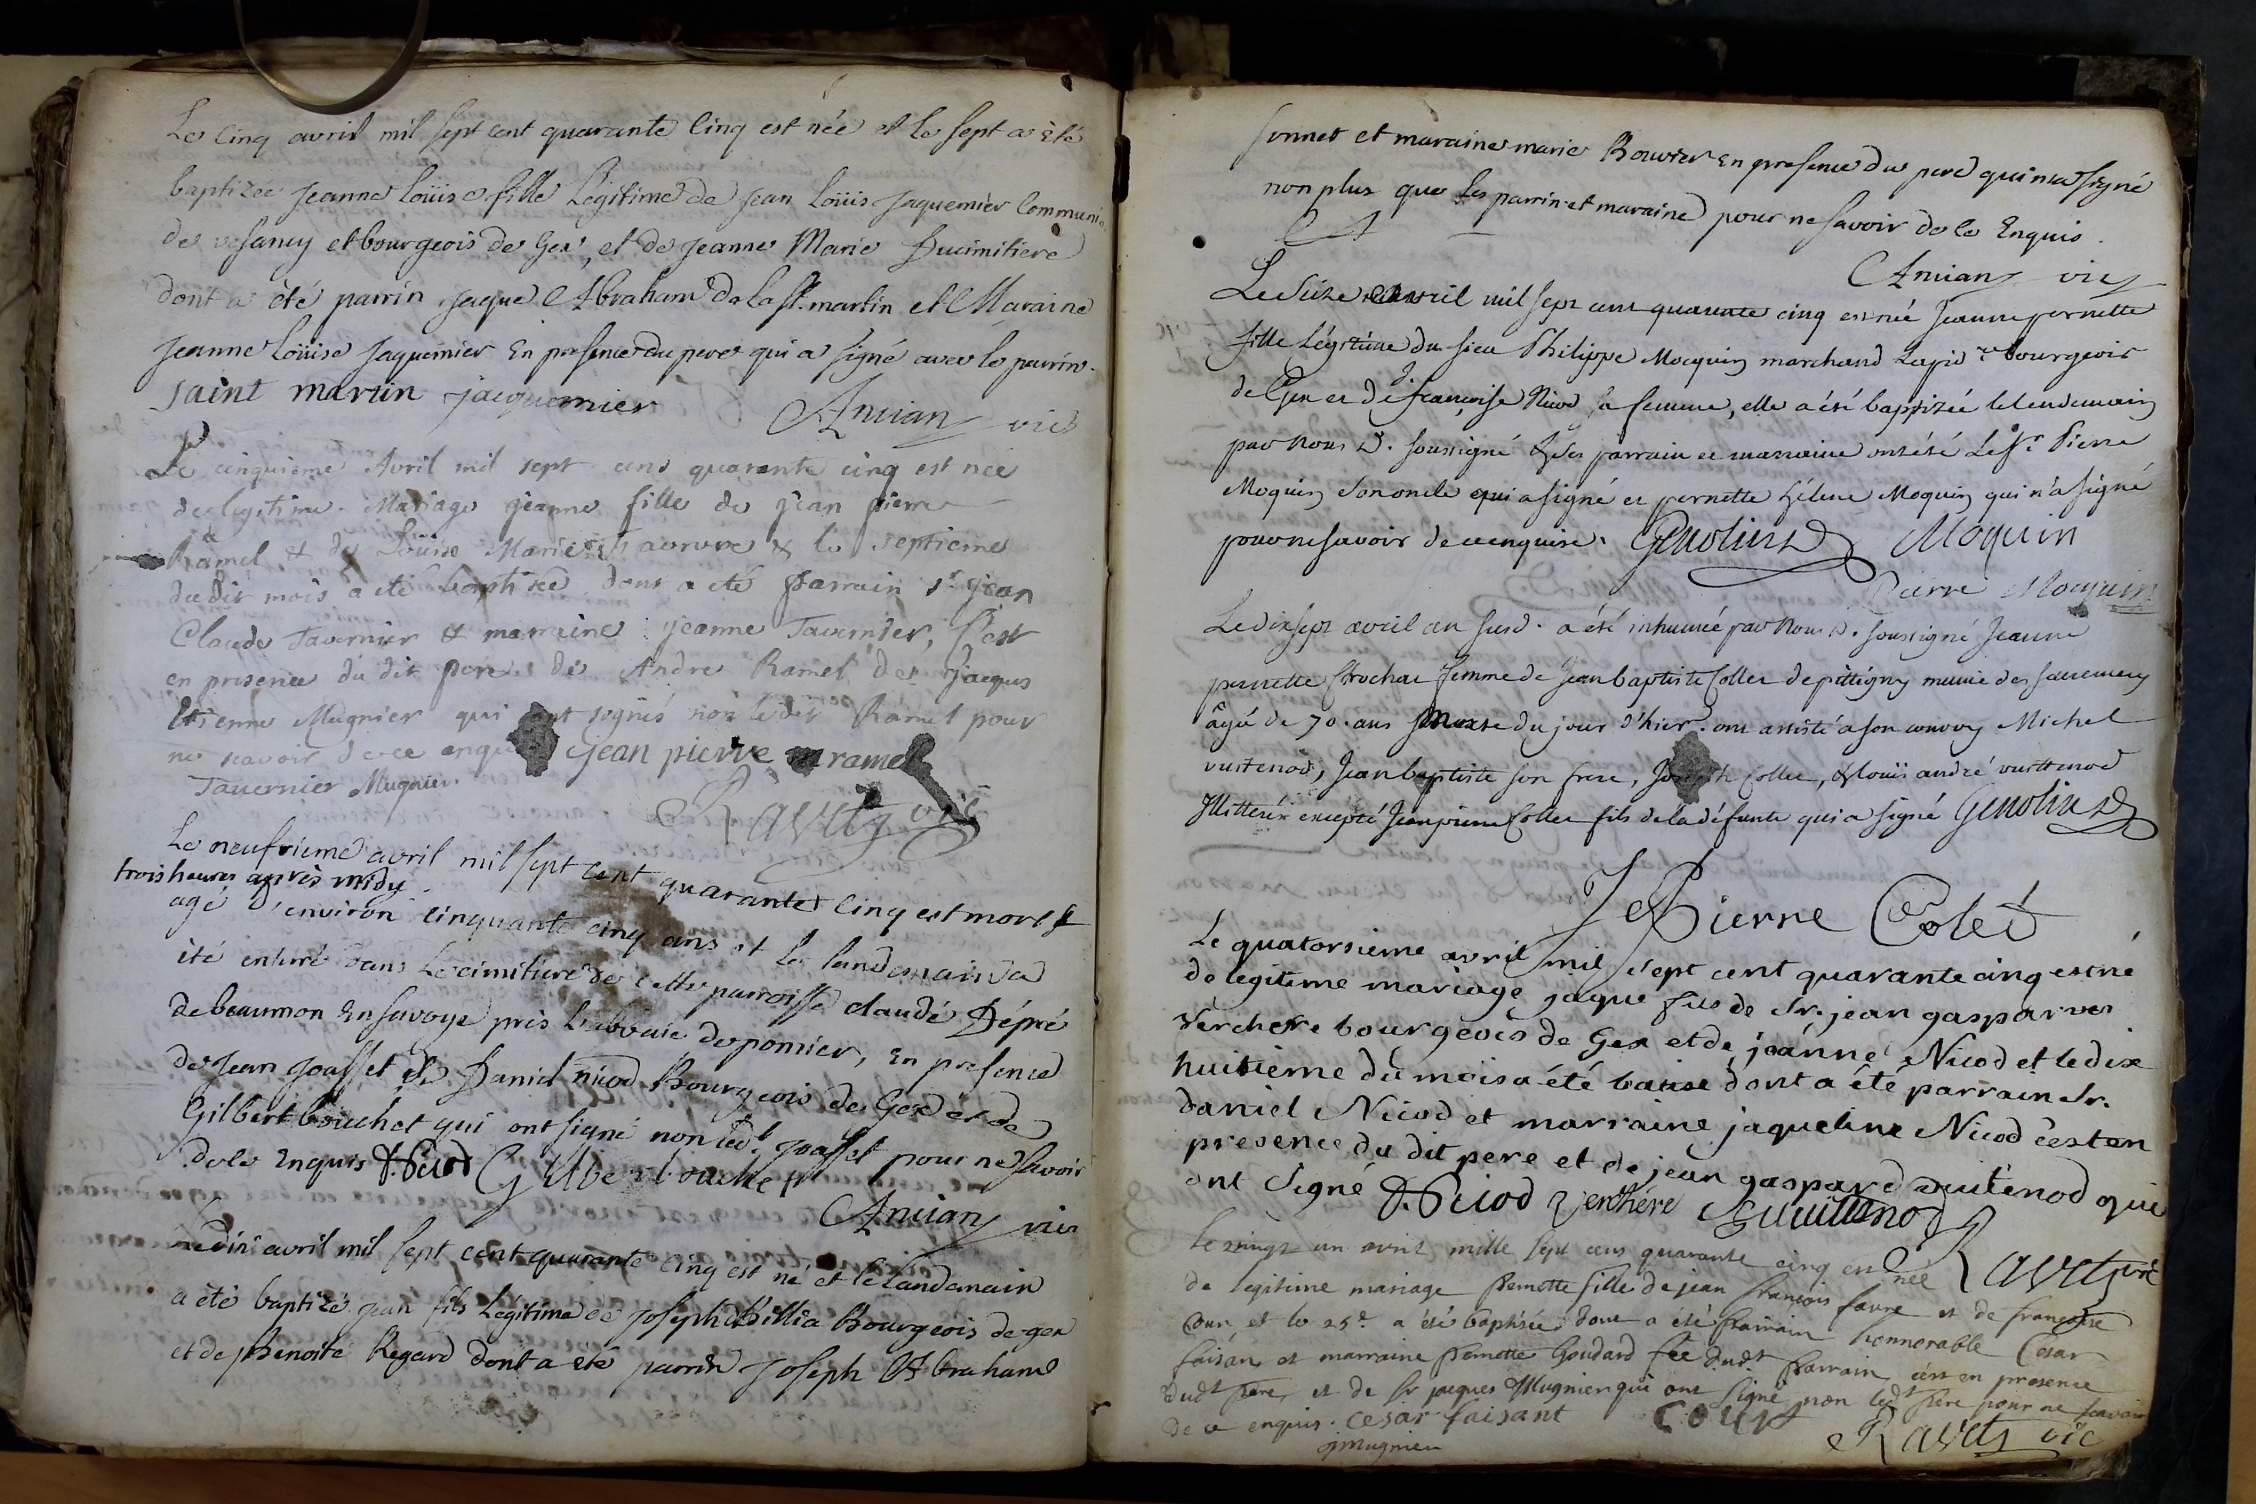 Le Cinq avril mil sept cent quarante Cinq est née et le sept a été
baptizée Jeanne Loüise fille Légitime de Jean Loüis Jaquemier Communi.
de vesancy et bourgeois de Gex, et de Jeanne Marie Ducimitiere
dont a été parrin Jaque Abraham De la St. martin et Maraine
Jeanne Loüise Jaquemier En presence du pere qui a signé avec le parrin.
saint martin jacquemier Anvian vic
Le cinquieme Avril mil sept cens quarante cinq est née
de legitime Mariage jeanne fille de jean pierre
Ramel & de Loüise Marie & le septieme
du dit mois a été baptisée dont a été parrain sr jean
Claude Tavernier & marraine jeanne Tavernier, c'est
en presence du dit pere de Andre Ramel de jacques
Etienne Mugnier qui ont signés non le dit Ramel pour
ne scavoir de ce enquis jean pierre ramel
Tavernier Mugnier.
Ravet vic
Le neufvieme avril mil sept cent quarante Cinq est mort
trois heures après midy.
agé d'environ cinquante cinq ans et le landemain a
été enterré dans Le cimitiere de cette parroisse claude Dépré
de beaumon En savoye près L'abbaie de pomier, En presence
de Jean Joasset de Daniel nicod Bourgeois de Gex et de
Gilbert bouchet qui ont signé non led.t Joasset pour ne savoir
de le Enquis D. Nicod Gilber bouchet
Anvian vic
Le dix avril mil sept cent quarante Cinq est né et le Landemain
a été baptizé jean fils Légitime de Joseph Billia Bourgeois de gex
et de Benoite Regard dont a été parrin Joseph Abraham
sonnet et maraine marie Bouvier En presence du pere qui n'a signé
non plus que les parrin et maraine pour ne savoir de le Enquis.
Anvian vic
Le Seize avril mil sept cent quarante cinq est née Jeanne pernette
fille Légitime du sieur Philippe Mocquin marchand Lapid.re bourgeois
de Gex et de françoise Nicod sa femme, elle a été baptizée le lendemain
par nous D. soussigné & les parrain et marraine ont été Le Sr. Pierre
Moquin son oncle qui a signé et pernette hélene Moquin qui n'a signé
pour ne savoir de ce enquise. Genolin D. Moquin
Pierre Moquin
Le dix sept avril an susd. a été inhumée par nous D. soussigné Jeanne
pernette Brochat femme de Jean baptiste Collet de pittigny munie des sacremens
âgé de 70. ans morte du jour d'hier. ont assisté a son convoy Michel
vuitenod, Jean baptiste son frere, Joseph Collet, & louis andré vuittenod
Illitterés excepté Jean pierre Collet fils de la défunte qui a signé Genolin D.
Je Pierre Colet
Le quatorsieme avril mil sept cent quarante cinq est né
de legitime mariage jaque fils de Sr. jean gaspar
verchere bourgeois de Gex et de jeanne Nicod et le dix
huitieme du mois a été batisé dont a été parrain Sr.
daniel Nicod et marraine jaqueline Nicod c'est en
presence du dit pere et de jean gaspard vuitenod qui
ont Signé D. Nicod verchére vuittenod
Ravet vic
le vingt un avril mille sept cens quarante cinq est née
de legitime mariage Pernette fille de jean françois favre et de françoise
Cour et le 25.e a été baptisée dont a été parrain honnorable Cesar
faisan et marraine Pernette Goudard fee dudt parrain c'est en presence
dudt pere, et de Sr jaques Mugnier qui ont signé non ledt pere pour ne scavoir
de ce enquis. cesar faisant COUR
Mugnier
Ravet vic